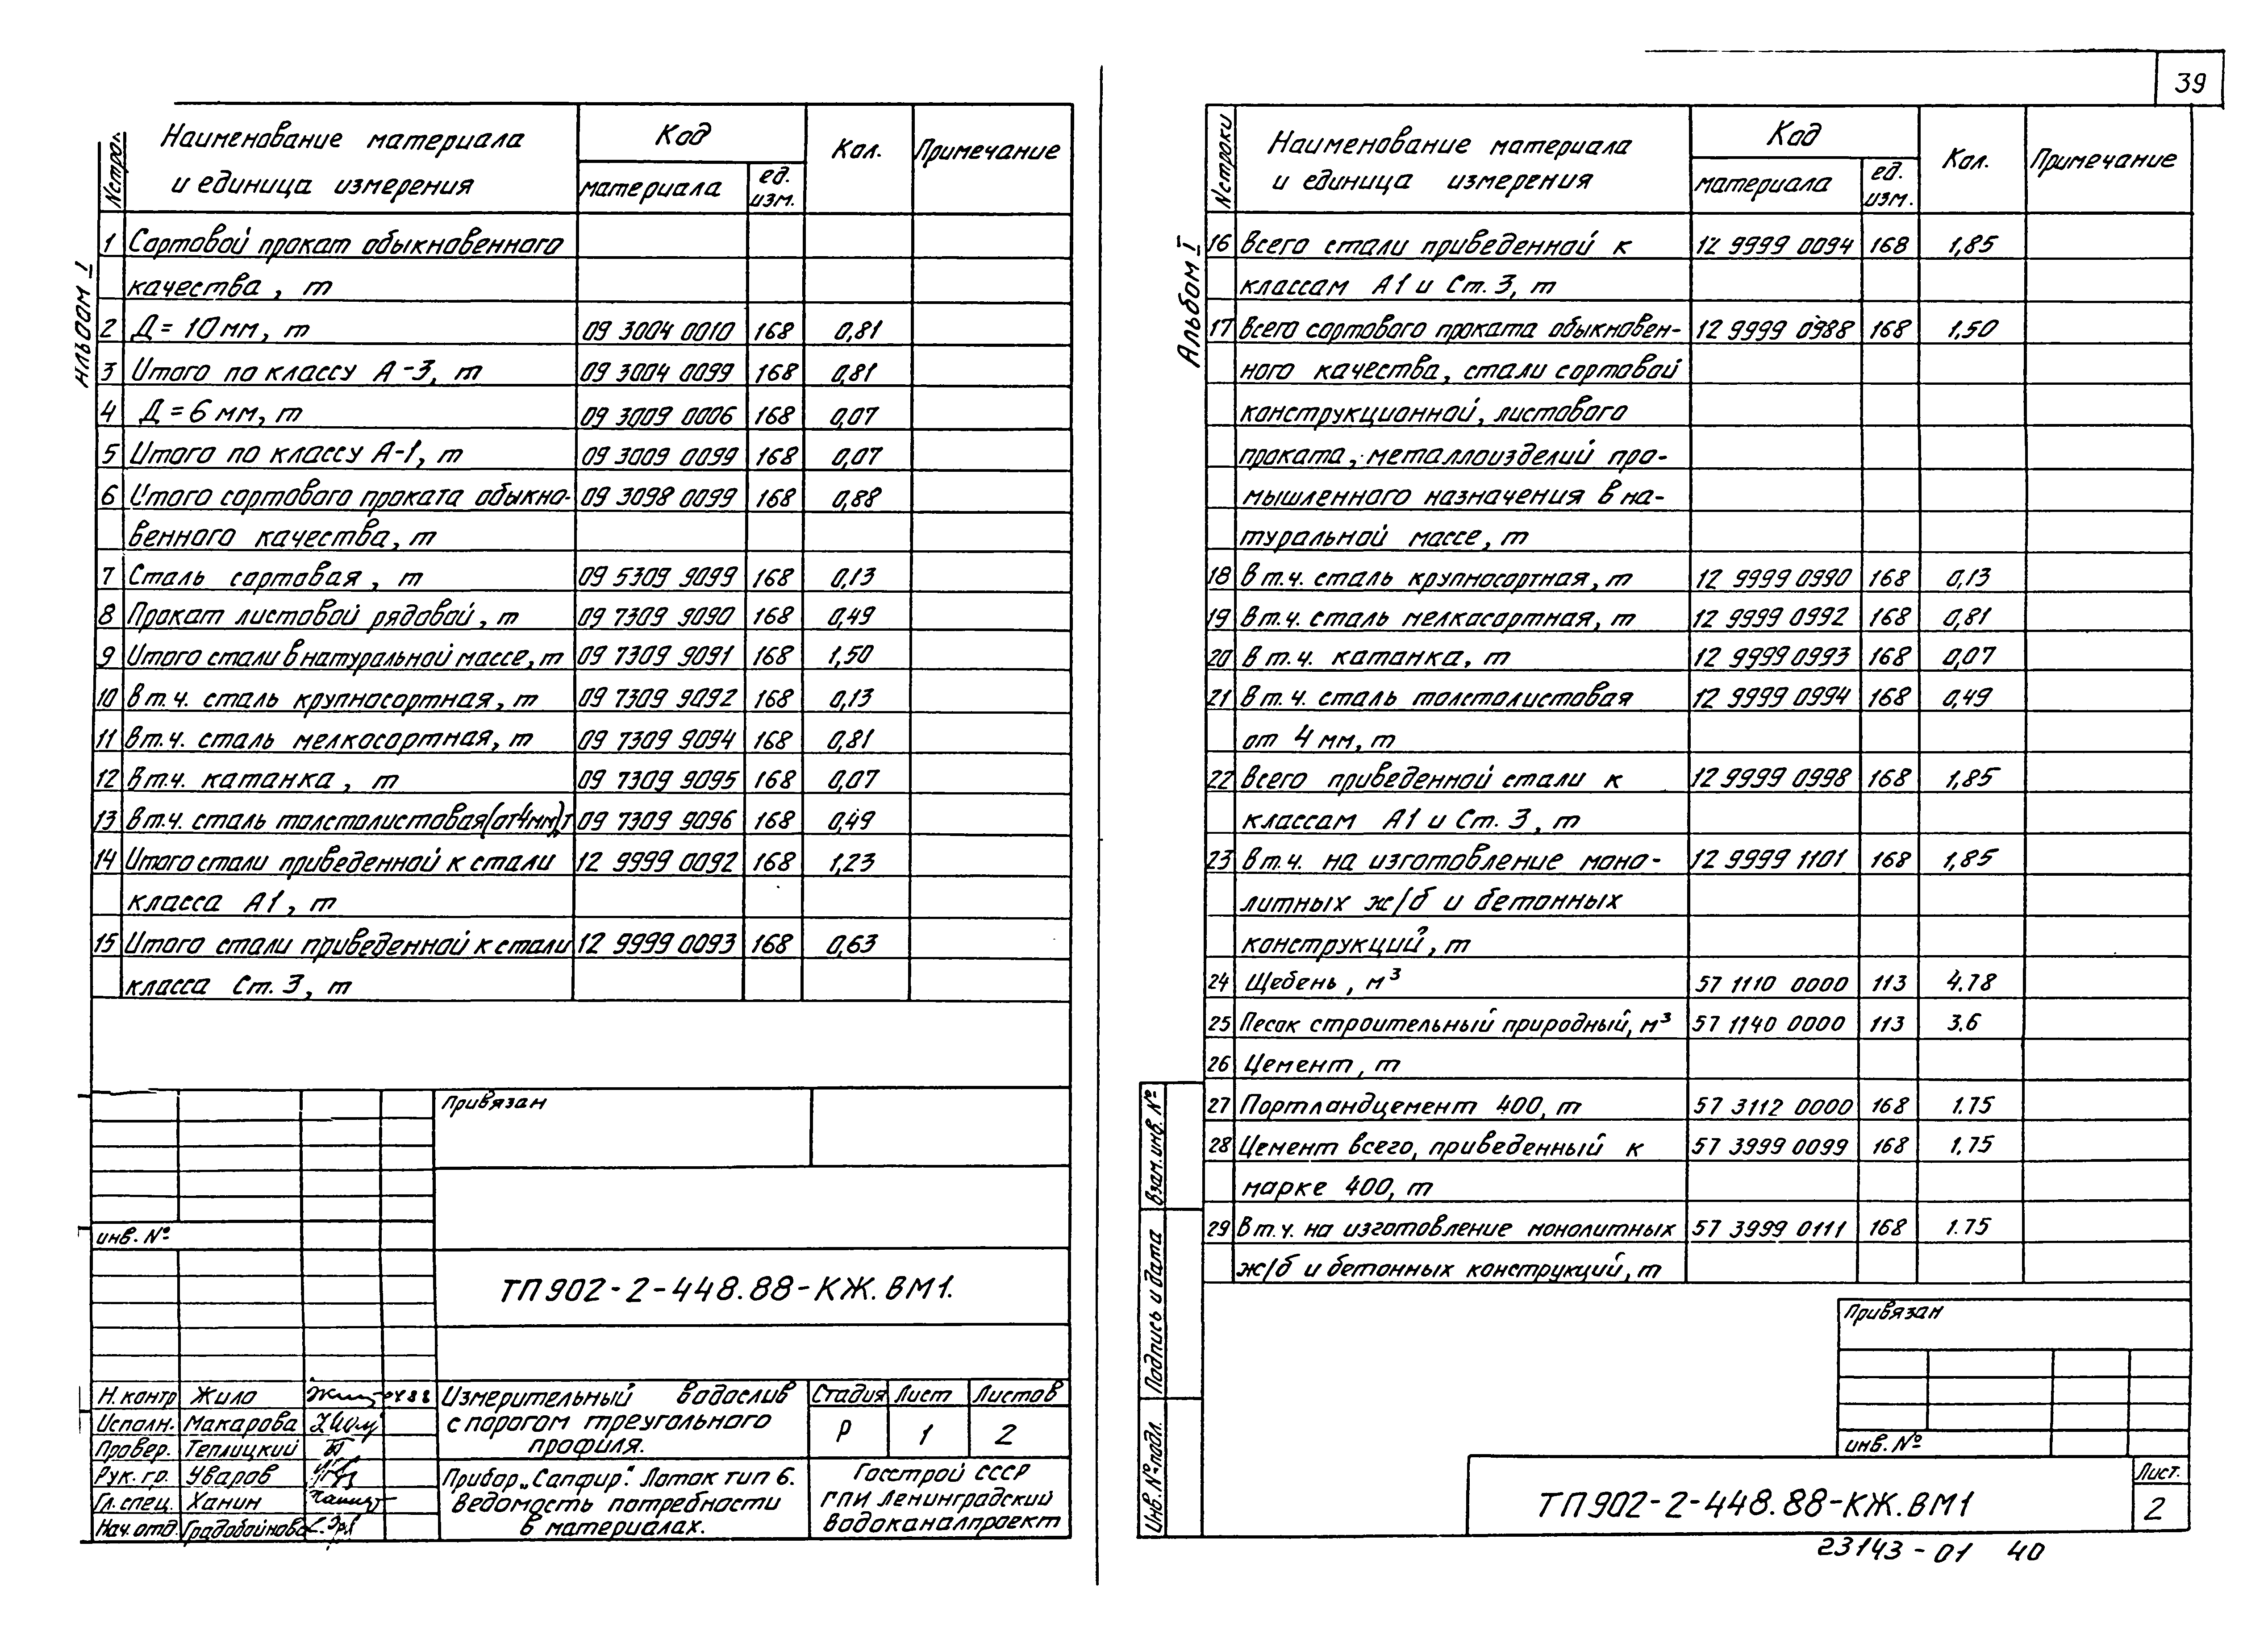 39
Альбом I
№ строк.
Наименование материала
и единица измерения
Код
материала
ед.
изм.
Кол.
Примечание
1 Сортовой прокат обыкновенного
качества, т
2 Д = 10 мм, т 09 3004 0010 168 0,81
3 Итого по классу А-3, т 09 3004 0099 168 0,81
4 Д = 6 мм, т 09 3009 0006 168 0,07
5 Итого по классу А-1, т 09 3009 0099 168 0,07
6 Итого сортового проката обыкно- 09 3098 0099 168 0,88
венного качества, т
7 Сталь сортовая, т 09 5309 9099 168 0,13
8 Прокат листовой рядовой, т 09 7309 9090 168 0,49
9 Итого стали в натуральной массе, т 09 7309 9091 168 1,50
10 в т.ч. сталь крупносортная, т 09 7309 9092 168 0,13
11 в т.ч. сталь мелкосортная, т 09 7309 9094 168 0,81
12 в т.ч. катанка, т 09 7309 9095 168 0,07
13 в т.ч. сталь толстолистовая (от 4мм), т 09 7309 9096 168 0,49
14 Итого стали приведенной к стали 12 9999 0092 168 1,23
класса А1, т
15 Итого стали приведенной к стали 12 9999 0093 168 0,63
класса Ст. 3, т
Привязан
инв. №
ТП 902-2-448.88-КЖ.ВМ1.
Н.контр Жило 04 88
Исполн. Макарова
Провер. Теплицкий
Рук. гр. Уваров
Гл. спец. Ханин
Нач. отд Градобойнова
Измерительный водослив
с порогом треугольного
профиля.
Стадия Лист Листов
Р 1 2
Прибор „Сапфир". Лоток тип 6.
Ведомость потребности
в материалах.
Госстрой СССР
ГПИ Ленинградский
Водоканалпроект
Альбом I
№ строки
Наименование материала
и единица измерения
Код
материала
ед.
изм.
Кол.
Примечание
16 всего стали приведенной к 12 9999 0094 168 1,85
классам А1 и Ст. 3, т
17 всего сортового проката обыкновен- 12 9999 0988 168 1,50
ного качества, стали сортовой
конструкционной, листового
проката, металлоизделий про-
мышленного назначения в на-
туральной массе, т
18 в т.ч. сталь крупносортная, т 12 9999 0990 168 0,13
19 в т.ч. сталь мелкосортная, т 12 9999 0992 168 0,81
20 в т.ч. катанка, т 12 9999 0993 168 0,07
21 в т.ч. сталь толстолистовая 12 9999 0994 168 0,49
от 4 мм, т
22 всего приведенной стали к 12 9999 0998 168 1,85
классам А1 и Ст. 3, т
23 в т.ч. на изготовление моно- 12 9999 1101 168 1,85
литных ж/б и бетонных
конструкций, т
24 Щебень, м³ 57 1110 0000 113 4.78
25 Песок строительный природный, м³ 57 1140 0000 113 3.6
26 Цемент, т
27 Портландцемент 400, т 57 3112 0000 168 1.75
28 Цемент всего, приведенный к 57 3999 0099 168 1.75
марке 400, т
29 В т.ч. на изготовление монолитных 57 3999 0111 168 1.75
ж/б и бетонных конструкций, т
Взам. инв. №
Подпись и дата
Инв. № подл.
Привязан
инв. №
ТП 902-2-448.88-КЖ.ВМ1
Лист.
2
23143-01 40